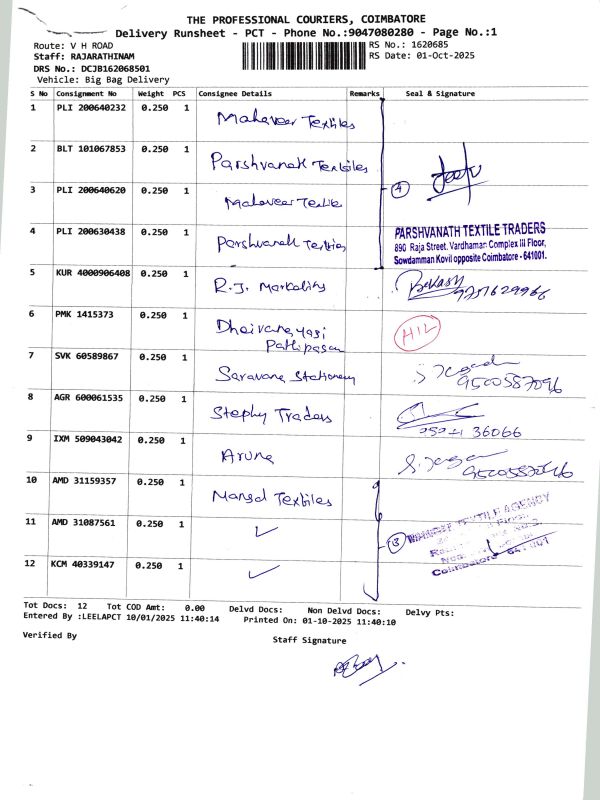 THE PROFESSIONAL COURIERS, COIMBATORE
Delivery Runsheet - PCT - Phone No.:9047080280 - Page No.:1
Route: V H ROAD
RS No.: 1620685
Staff: RAJARATHINAM
RS Date: 01-Oct-2025
DRS No.: DCJB162068501
Vehicle: Big Bag Delivery
S No Consignment No Weight PCS Consignee Details Remarks Seal & Signature
1 PLI 200640232 0.250 1 Mahaveer Textiles
2 BLT 101067853 0.250 1 Parshvanath Textiles
3 PLI 200640620 0.250 1 Mahaveer Textile
4
4 PLI 200630438 0.250 1 Parshvanath Textiles
PARSHVANATH TEXTILE TRADERS
890 Raja Street, Vardhaman Complex III Floor,
Sowdamman Kovil opposite Coimbatore - 641001.
5 KUR 4000906408 0.250 1 R.J.
6 PMK 1415373 0.250 1
7 SVK 60589867 0.250 1 Saravana Stationery
8 AGR 600061535 0.250 1 Stephy Traders
36066
9 IXM 509043042 0.250 1 Aruna
10 AMD 31159357 0.250 1 Mangal Textiles
11 AMD 31087561 0.250 1
AGENCY
12 KCM 40339147 0.250 1
Coimbatore - 641001
Tot Docs: 12 Tot COD Amt: 0.00 Delvd Docs: Non Delvd Docs: Delvy Pts:
Entered By :LEELAPCT 10/01/2025 11:40:14 Printed On: 01-10-2025 11:40:10
Verified By
Staff Signature